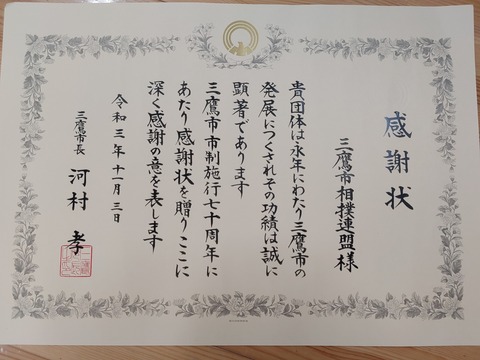 感謝状
三鷹市相撲連盟様
貴団体は永年にわたり三鷹市の
発展につくされその功績は誠に
顕著であります
三鷹市市制施行七十周年に
あたり感謝状を贈りここに
深く感謝の意を表します
令和三年十一月三日
三鷹市長 河村 孝